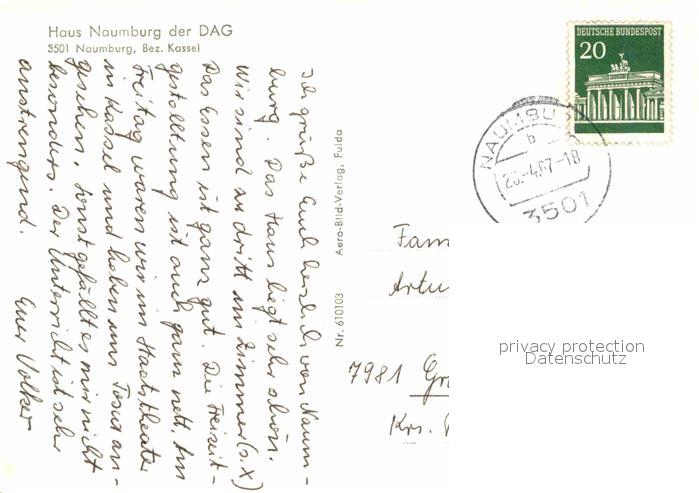 Haus Naumburg der DAG
3501 Naumburg, Bez. Kassel
Ich grüße Euch herzlich von Naum-
burg. Das Haus liegt sehr schön.
Wir sind zu dritt im Zimmer (s. X)
Das Essen ist ganz gut. Die Freizeit-
gestaltung ist auch ganz nett. Am
Freitag waren wir im Staatstheater
in Kassel und haben uns Tosca an-
gesehen, sonst gefällt es mir nicht
besonders. Der Unterricht ist sehr
anstrengend.
Euer Volker
Aero-Bild-Verlag, Fulda
Nr. 610103
DEUTSCHE BUNDESPOST
20
NAUMBU
b
-4.67-18
3501
Fam
Artu
7981 Gr
Krs.
privacy protection
Datenschutz